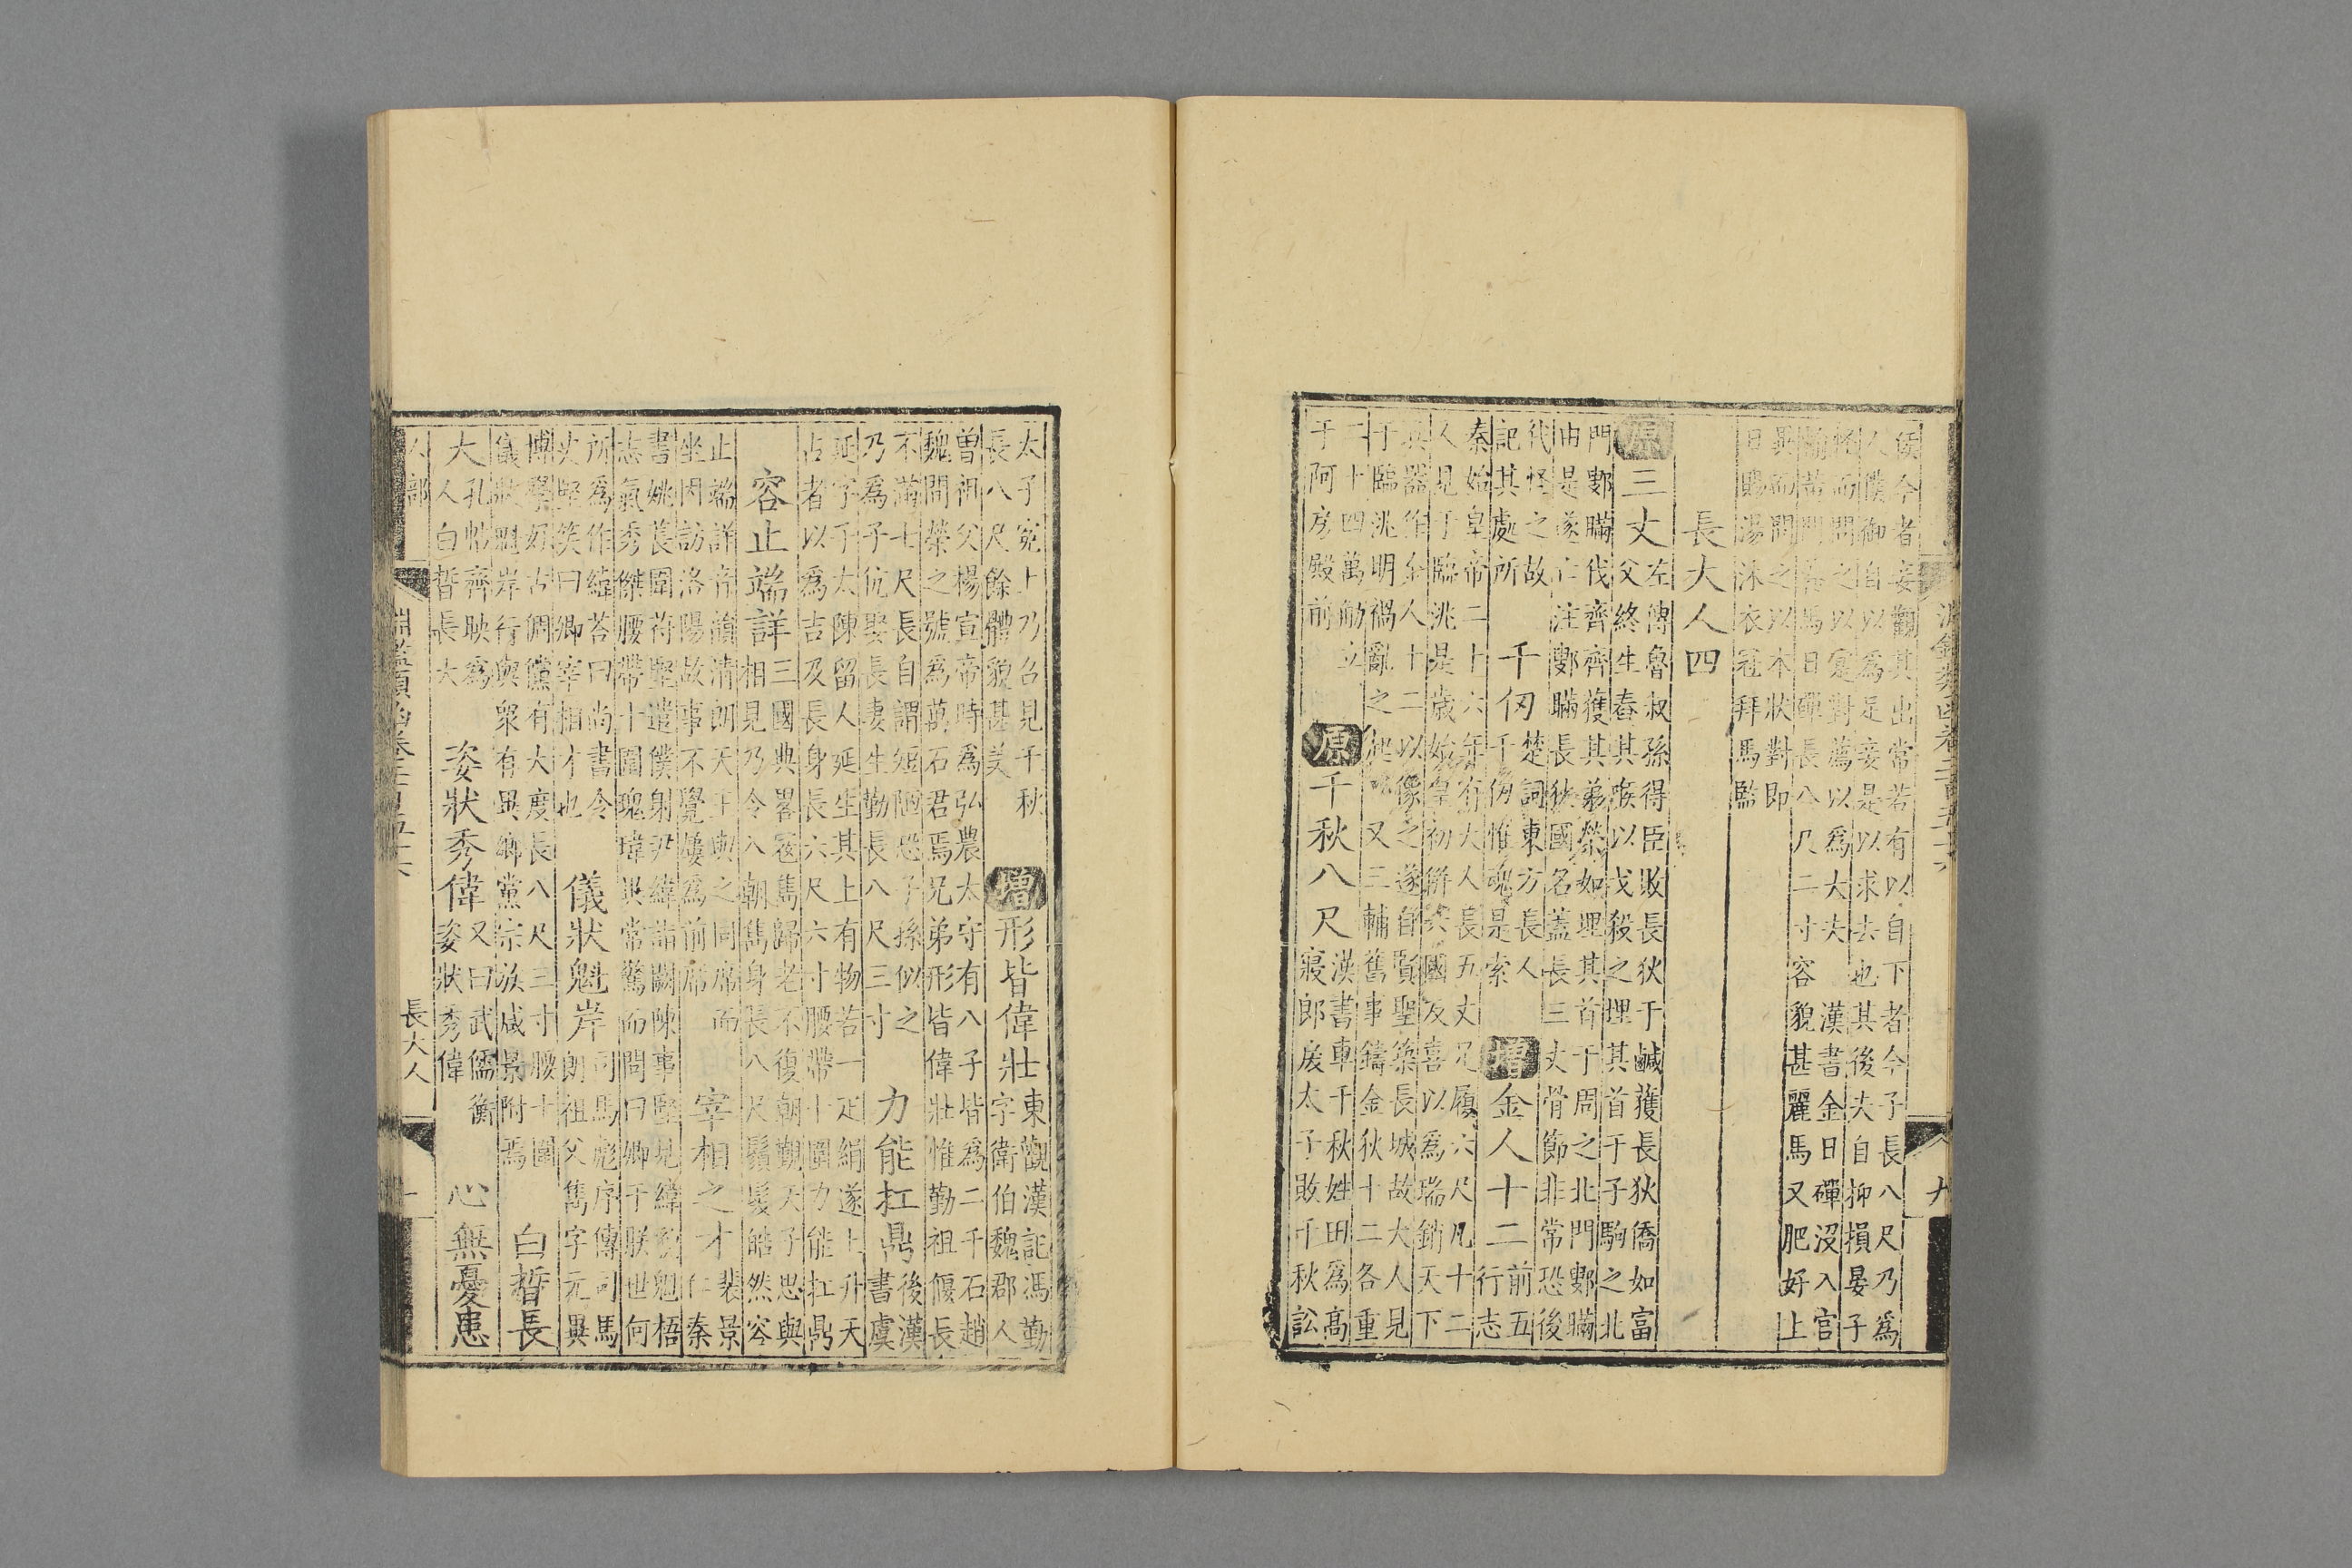 淵鑑類函卷二百五十六
九
侯今者妾觀其出常若有以自下者今子長八尺乃爲
人僕御自以爲足妾是以求去也其後夫自抑損晏子
怪而問之以實對薦以爲大夫 漢書金日磾沒入官
輸黃門養馬日磾長八尺二寸容貌甚麗馬又肥好上
異而問之以本狀對即
日賜湯沐衣冠拜馬監
長大人四
原三丈
左傳魯叔孫得臣敗長狄于鹹獲長狄僑如富
父終生舂其喉以戈殺之埋其首于子駒之北
門鄋瞞伐齊齊獲其弟榮如埋其首于周之北門鄋瞞
由是遂亡注鄋瞞長狄國名蓋長三丈骨節非常恐後
代怪之故
記其處所
千仞
楚詞東方長人
千仞惟魂是索
增金人十二
前五
行志
秦始皇帝二十六年有大人長五丈足履六尺凡十二
人見于臨洮是歲始皇初併六國反喜以爲瑞銷天下
兵器作金人十二以像之遂自賢聖築長城故大人見
于臨洮明禍亂之起 又三輔舊事鑄金狄十二各重
二十四萬觔立
于阿房殿前
原千秋八尺
漢書車千秋姓田爲高
寢郎戾太子敗千秋訟
太子寃上乃召見千秋
長八尺餘體貌甚美
增形皆偉壯
東觀漢記馮勤
字衛伯魏郡人
曾祖父楊宣帝時爲弘農太守有八子皆爲二千石趙
魏間榮之號爲萬石君焉兄弟形皆偉壯惟勤祖偃長
不滿七尺長自謂短陋恐子孫似之
乃爲子伉娶長妻生勤長八尺三寸
力能扛鼎
後漢
書虞
延字子太陳留人延生其上有物若一疋絹遂上升天
占者以爲吉及長身長六尺六寸腰帶十圍力能扛鼎
容止端詳
三國典畧寇雋歸老不復朝覲天子思與
相見乃令入朝雋身長八尺鬚髮皓然容
止端詳音韻清朗天王與之同席而
坐因訪洛陽故事不覺屢爲前席
宰相之才
裴景
仁秦
書姚萇圍苻堅遣僕射尹緯詣闕陳事堅見緯貌魁梧
志氣秀傑腰帶十圍瑰瑋異常驚而問曰卿于朕世何
所爲作緯荅曰尚書令
丈堅笑曰卿宰相才也
儀狀魁岸
司馬彪序傳司馬
朗祖父雋字元異
博學好古倜儻有大度長八尺三寸腰十圍
儀狀魁岸行與衆有異鄉黨宗族咸景附焉
白皙長
大
孔帖齊映爲
人白皙長大
姿狀秀偉
又曰武儒衡
姿狀秀偉
心無憂患
人部
淵鑑類函卷二百五十六
長大人